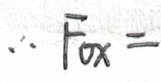 ∴ Fox =